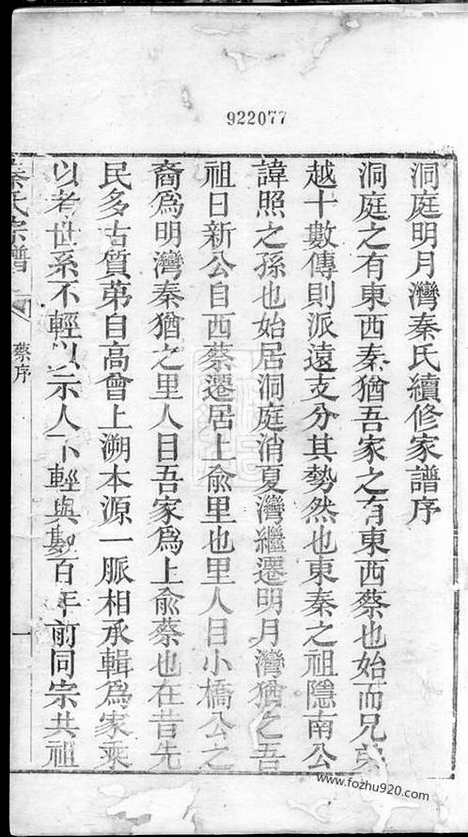 922077
洞庭明月灣秦氏續修家譜序
洞庭之有東西秦猶吾家之有東西蔡也始而兄弟
越十數傳則派遠支分其勢然也東秦之祖隱南公
諱照之孫也始居洞庭消夏灣繼遷明月灣猶之吾
祖日新公自西蔡遷居上俞里也里人目小橋公之
裔爲明灣秦猶之里人目吾家爲上俞蔡也在昔先
民多古質苐自高曾上溯本源一脈相承輯爲家乘
以考世系不輕以示人不輕與數百年前同宗共祖
秦氏宗譜
蔡序
一
www.fozhu920.com